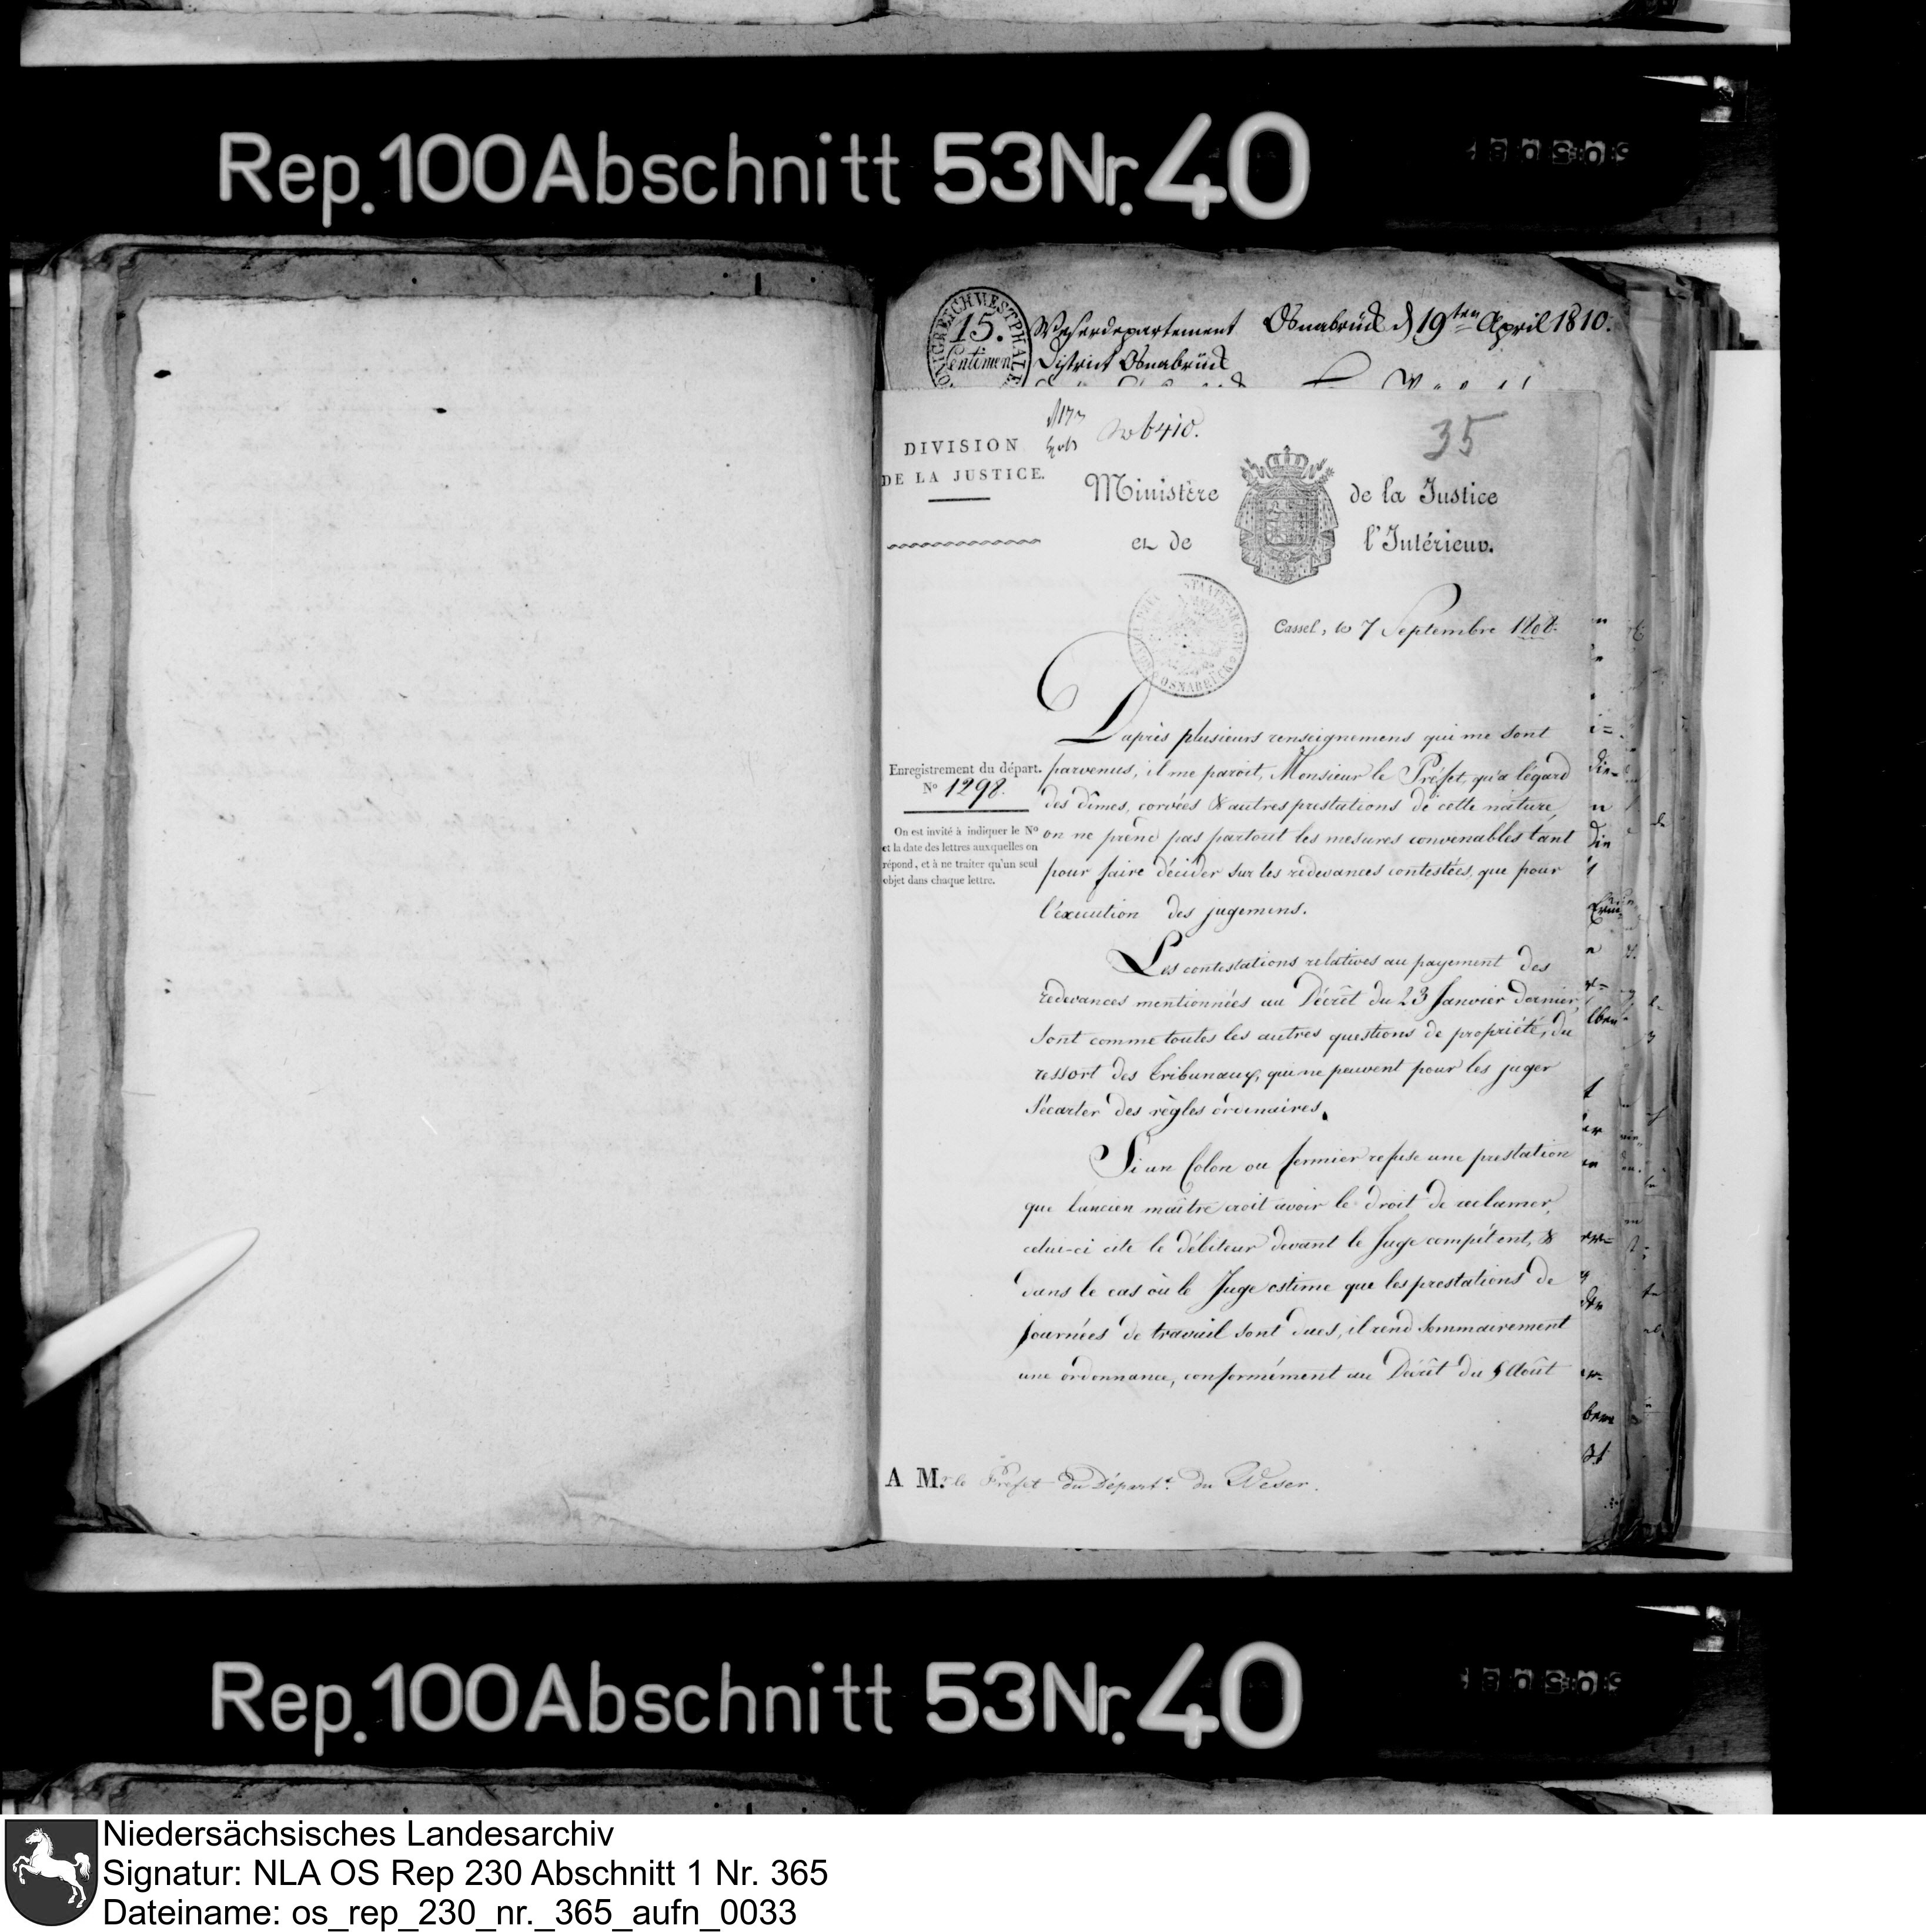 Rep. 100 Abschnitt 53 Nr. 40
KÖNIGREICH WESTPHALEN
15.
Centimen
Weserdepartement Osnabrück d 19ten April 1810.
District Osnabrück
35
DIVISION
DE LA JUSTICE.
Ministère de la Justice
et de l'Intérieur.
OSNABRÜCK
Cassel, le 7 Septembre 1808.
Daprès plusieurs renseignemens qui me sont
Enregistrement du départ.
No 1298.
On est invité à indiquer le No
et la date des lettres auxquelles on
répond, et à ne traiter qu'un seul
objet dans chaque lettre.
parvenus, il me paroit, Monsieur le Préfet, qu'a légard
des dîmes, corvées & autres prestations de cette nature,
on ne prend pas partout les mesures convenables tant
pour faire décider sur les redevances contestées, que pour
l'éxecution des jugemens.
Les contestations relatives au payement des
redevances mentionnées au Décrêt du 23 Janvier dernier
sont comme toutes les autres questions de propriété, du
ressort des tribunaux, qui ne peuvent pour les juger
s'écarter des règles ordinaires.
Si un Colon ou fermier refuse une prestation
que lancien maître croit avoir le droit de reclamer,
celui-ci cite le débiteur devant le Juge compétent, &
dans le cas où le Juge estime que les prestations de
journées de travail sont dues, il rend sommairement
une ordonnance, conformément au Décrêt du 5 Août
A Mr. le Préfet du Départt. du Weser.
Rep. 100 Abschnitt 53 Nr. 40
Niedersächsisches Landesarchiv
Signatur: NLA OS Rep 230 Abschnitt 1 Nr. 365
Dateiname: os_rep_230_nr._365_aufn_0033